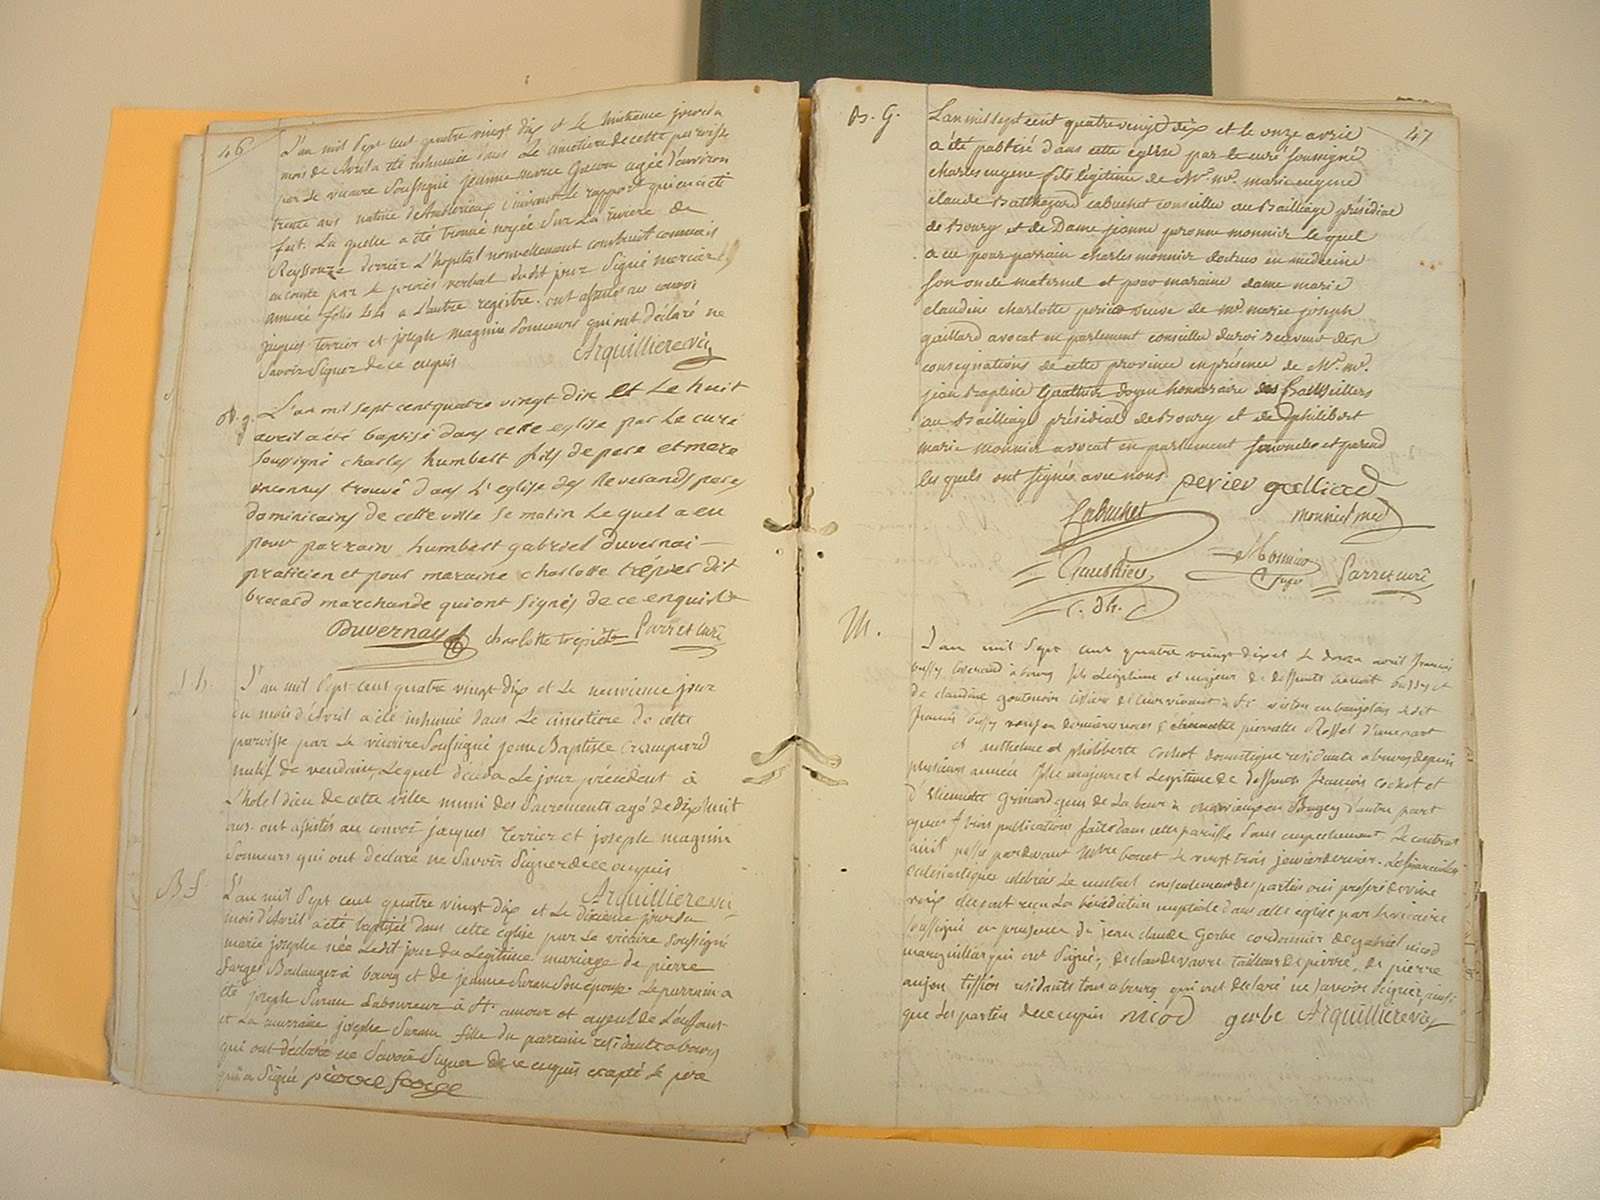 46
L'an mil sept cent quatre vingt dix et le huitieme jour du
mois de Avril a été inhumée dans le cimetiere de cette paroisse
par le vicaire soussigné jeanne marie agée d'environ
trente ans native d'Ambérieux suivant le rapport qui en a été
fait. La quelle a été trouvé noyée sur La riviere de
Reyssouze derrier L'hopital nouvellement construit comme il
en conste par le procès verbal dudit jour signé mercier
annexé folio 44 a L'autre registre. ont assisté au convoi
jaques terrier et joseph magnin sonneurs qui ont déclaré ne
savoir signer de ce enquis Arquilliere vic
B. g. L'an mil sept cent quatre vingt dix et Le huit
avril a été baptisé dans cette eglise par Le curé
soussigné charles humbert fils de pere et mere
inconnus trouvé dans L'eglise des Reverands peres
dominicains de cette ville se matin Le quel a eu
pour parrain humbert gabriel duvernai
praticien et pour maraine charlotte trépier dit
brocard marchande qui ont signés de ce enquis
Duvernay charlotte trepier Parret curé
L'an mil sept cent quatre vingt dix et Le neuvieme jour
du mois d'Avril a été inhumé dans Le cimetiere de cette
paroisse par Le vicaire soussigné jean Baptiste
natif de Lequel déceda Le jour précédent à
L'hotel dieu de cette ville muni des sacrements agé de dix huit
ans. ont assistés au convoi jacques terrier et joseph magnin
sonneurs qui ont declaré ne savoir signer de ce enquis
Arquilliere vic
B f. L'an mil sept cent quatre vingt dix et Le dixieme jour du
mois d'Avril a été baptisée dans cette église par Le vicaire soussigné
marie josephe née Ledit jour du Légitime mariage de pierre
farges Boulanger à bourg et de jeanne Suran son epouse. Le parrain a
été joseph Suran Laboureur à St. amour et ayeul de L'enfant
et La marraine josephe Suran fille du parrain residante a bourg
qui ont déclaré ne savoir signer de ce enquis excepté le pere
qui a signé pierre farge
47
B. G. L'an mil sept cent quatre vingt dix et le onze avril
a été baptisé dans cette eglise par le curé soussigné
charles eugene fils légitime de Mr. me. marie eugene
claude Balthazard cabuchet conseiller au Bailliage présidial
de Bourg et de Dame jeanne peronne monnier le quel
a eu pour parrain charles monnier docteur en médecine
son oncle maternel et pour maraine dame marie
claudine charlotte perier veuve de me. marie joseph
gaillard avocat en parlement conseiller du roi receveur des
consignations de cette province en présence de Mr. me.
jean baptiste Gauthier doyen honoraire des Conseillers
au Bailliage présidial de Bourg et de philibert
marie Monnier avocat en parlement
les quels ont signés avec nous. perier galliard
Cabuchet monnier med
Gauthier Monnier Parret curé
c. dh.
M. L'an mil sept cent quatre vingt dix et Le douze avril françois
bussy a bourg fils Légitime et majeur de deffunts benoit bussy et
de claudine de Leur vivant à St. en beaujolais Ledit
françois bussy veuf en dernieres noces d' pierrette Rosset d'une part
et anthelme et philiberte Cochet domestique residante a bourg depuis
plusieurs années fille majeure et Legitime de deffunts françois Cochet et
d'Etiennette de La en Bugey d'autre part
apres 3 trois publications faites dans cette paroisse sans empechement. Le contrat
civil passé par devant Mtre bonet Le vingt trois janvier dernier. Les
ecclesiastiques celebrées Le mutuel consentement des parties oui proferé de vive
voix elles ont reçu La bénédiction nuptiale dans cette eglise par Le vicaire
soussigné en presence de jean claude Gerbe cordonnier de gabriel nicod
marguillier qui ont signé; de claude vavre tailleur de pierre, de pierre
tissier residants tous a bourg qui ont déclaré ne savoir signer ainsi
que Les parties de ce enquis nicod gerbe Arquilliere vic